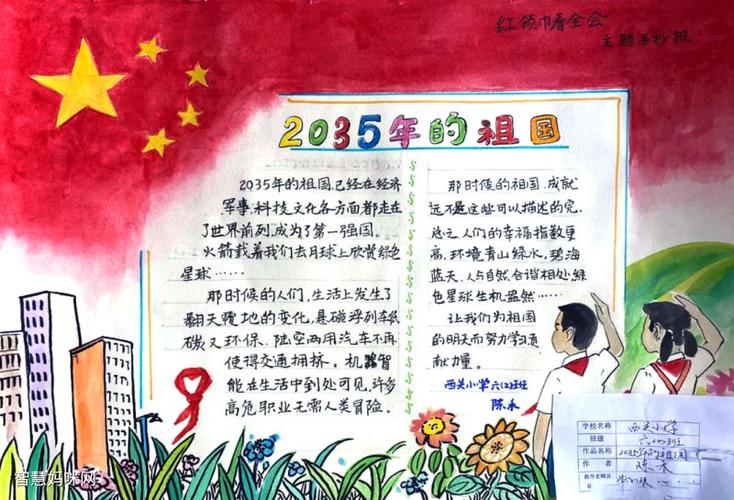 红领巾看全会
主题手抄报
2035年的祖国
2035年的祖国,已经在经济
军事,科技,文化各方面都走在
了世界前列,成为了第一强国。
火箭载着我们去月球上欣赏绿色
星球······
那时候的人们,生活上发生了
翻天覆地的变化,悬磁浮列车低
碳又环保,陆空两用汽车不再
使得交通拥挤。机器智
能在生活中到处可见,许多
高危职业无需人类冒险。
那时候的祖国,成就
远不是这些可以描述的完。
总之,人们的幸福指数更
高,环境青山绿水,碧海
蓝天,人与自然合谐相处,绿
色星球生机盎然······
让我们为祖国
的明天而努力学习,
献力量。
西关小学六(2)班
陈禾
学校名称 西关小学
班级 六(2)班
作品名称 2035年的祖国
作者 陈禾
指导老师
智慧妈咪网